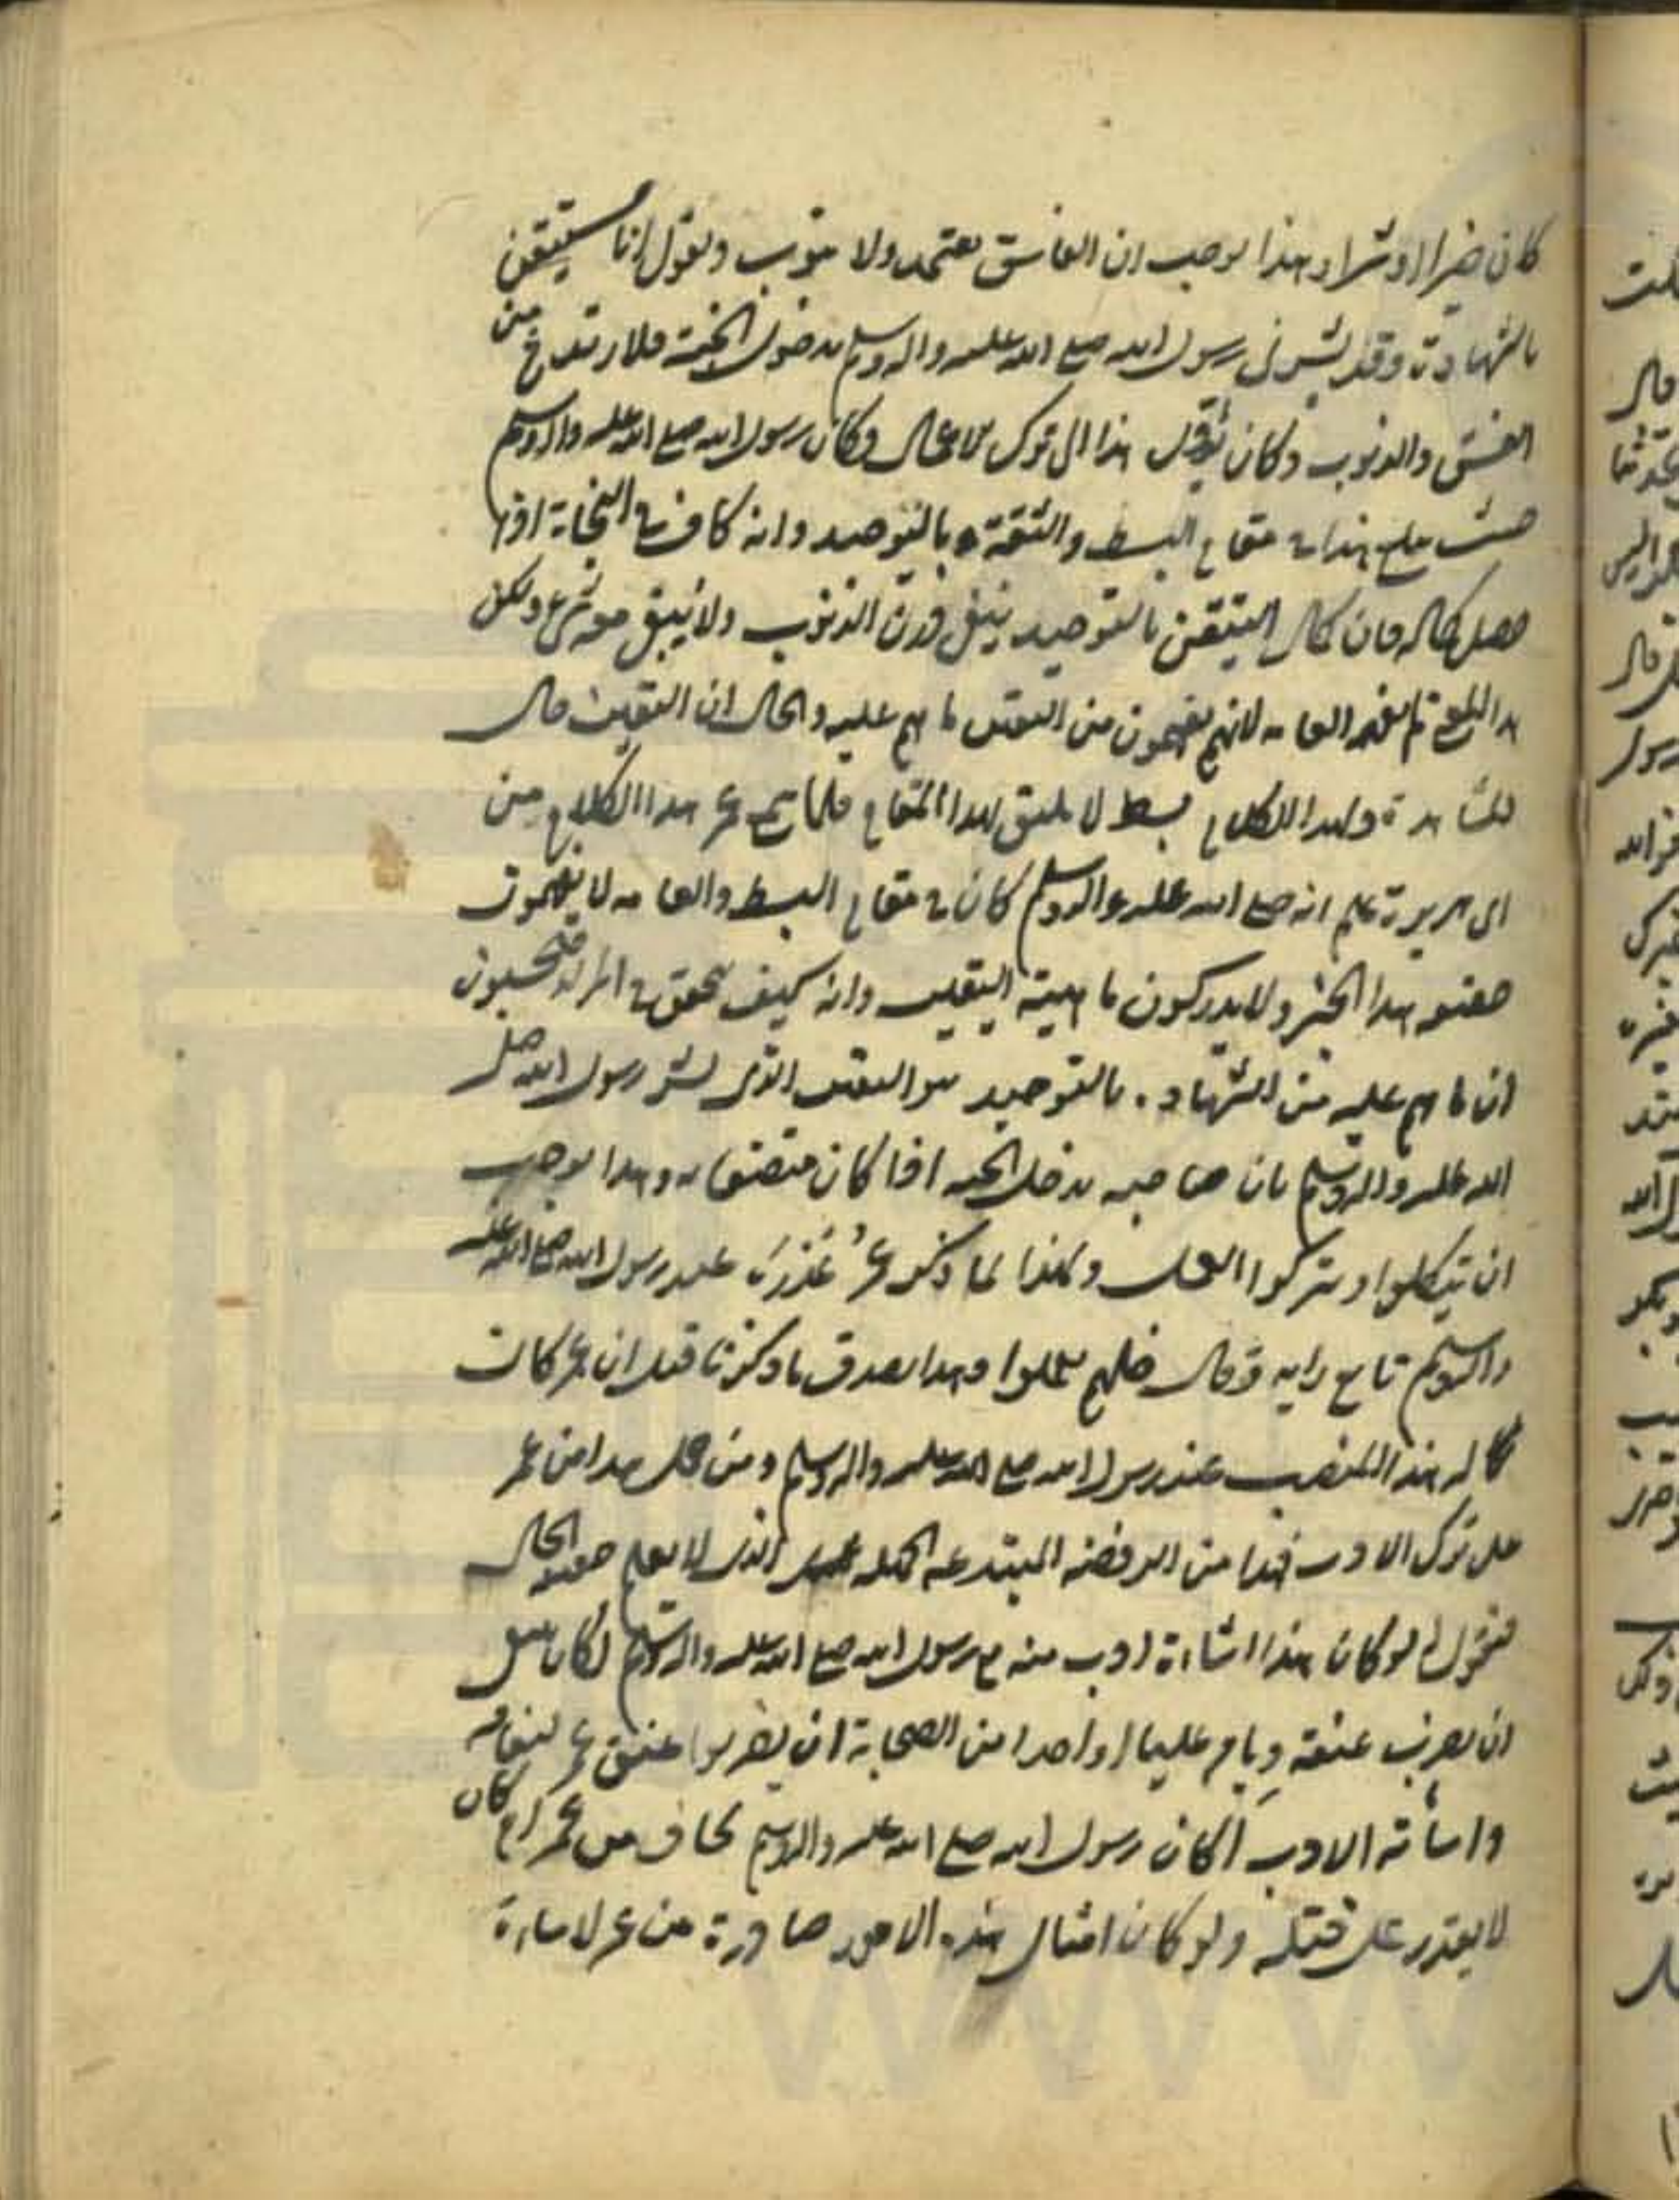 كان خيرا او شرا وهذا يوجب ان الفاسق يعتمد ولا يتوب ويقول انا مستيقن
بالشهادة وقد بشرني رسول الله صلى الله عليه واله وسلم بدخول الجنة فلا يرتدع من
الفسق والذنوب وكان يؤول هذا الى ترك الاعمال وكان رسول الله صلى الله عليه واله وسلم
هذا في مقام البسط والثقة بالتوحيد وانه كاف في النجاة اذا
حصل كماله فان كمال التيقن بالتوحيد ينفي درن الذنوب ولا يبقى معه شي ولكن
هذا المعنى لم يفهم العامه لانهم يفهمون من اليقين ما هم عليه والحال ان اليقين حال
المشاهدة وهذا الكلام بسط لا يليق لهذا المقام فلما سمع عمر هذا الكلام من
ابي هريرة علم انه صلى الله عليه واله وسلم كان في مقام البسط والعامه لا يفهمون
حقيقه هذا الخبر ولا يدركون ماهية اليقين وانه كيف يتحقق في المرء فيحسبون
ان ما هم عليه من الشهاده بالتوحيد هو اليقين الذي بشر رسول الله صلى
الله عليه واله وسلم بان صاحبه يدخل الجنه اذا كان متصفا به وهذا يوجب
ان يتكلوا ويتركوا العمل ولهذا لما ذكر عمر عذره عند رسول الله صلى الله عليه
واله وسلم تابع رايه وقال خلهم يعملوا وهذا يصدق ما ذكرنا قبل ان عمر كان
له هذا المنصب عند رسول الله صلى الله عليه واله وسلم ومن حمل هذا من عمر
على ترك الادب فهذا من الرفضه المبتدعه الجهله الذي لا يعلم حقيقه الحال
فنقول له لو كان هذا اساءة ادب منه مع رسول الله صلى الله عليه واله وسلم لكان
ان يضرب عنقه ويامر عليا او واحدا من الصحابة ان يضربوا عنق عمر لنفاقه
واسائة الادب اكان رسول الله صلى الله عليه واله وسلم يخاف من عمر ام كان
لا يقدر على قتله ولو كان امثال هذه الامور صادرة من عمر لاساءة